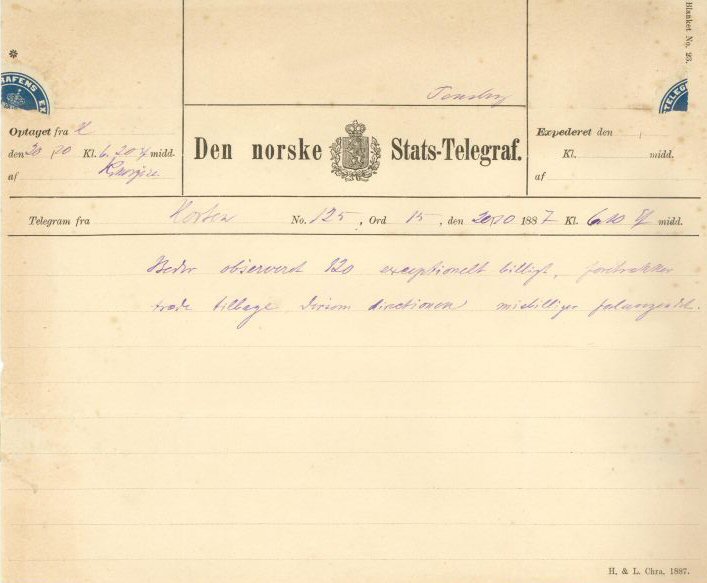 Blanket No. 23.
GRAFENS EX
TELEG
Tønsberg
Optaget fra H
den 20 10 Kl. 6.20 midd.
af
Den norske Stats-Telegraf.
Expederet den
Kl. midd.
af
Telegram fra Horten No. 125, Ord 15, den 20/10 1887 Kl. 6.10 midd.
Beder observeret 120 exceptionelt billigt, foretrækker
træde tilbage dersom directionen misbilliger forlangendet.
H. & L. Chra. 1887.